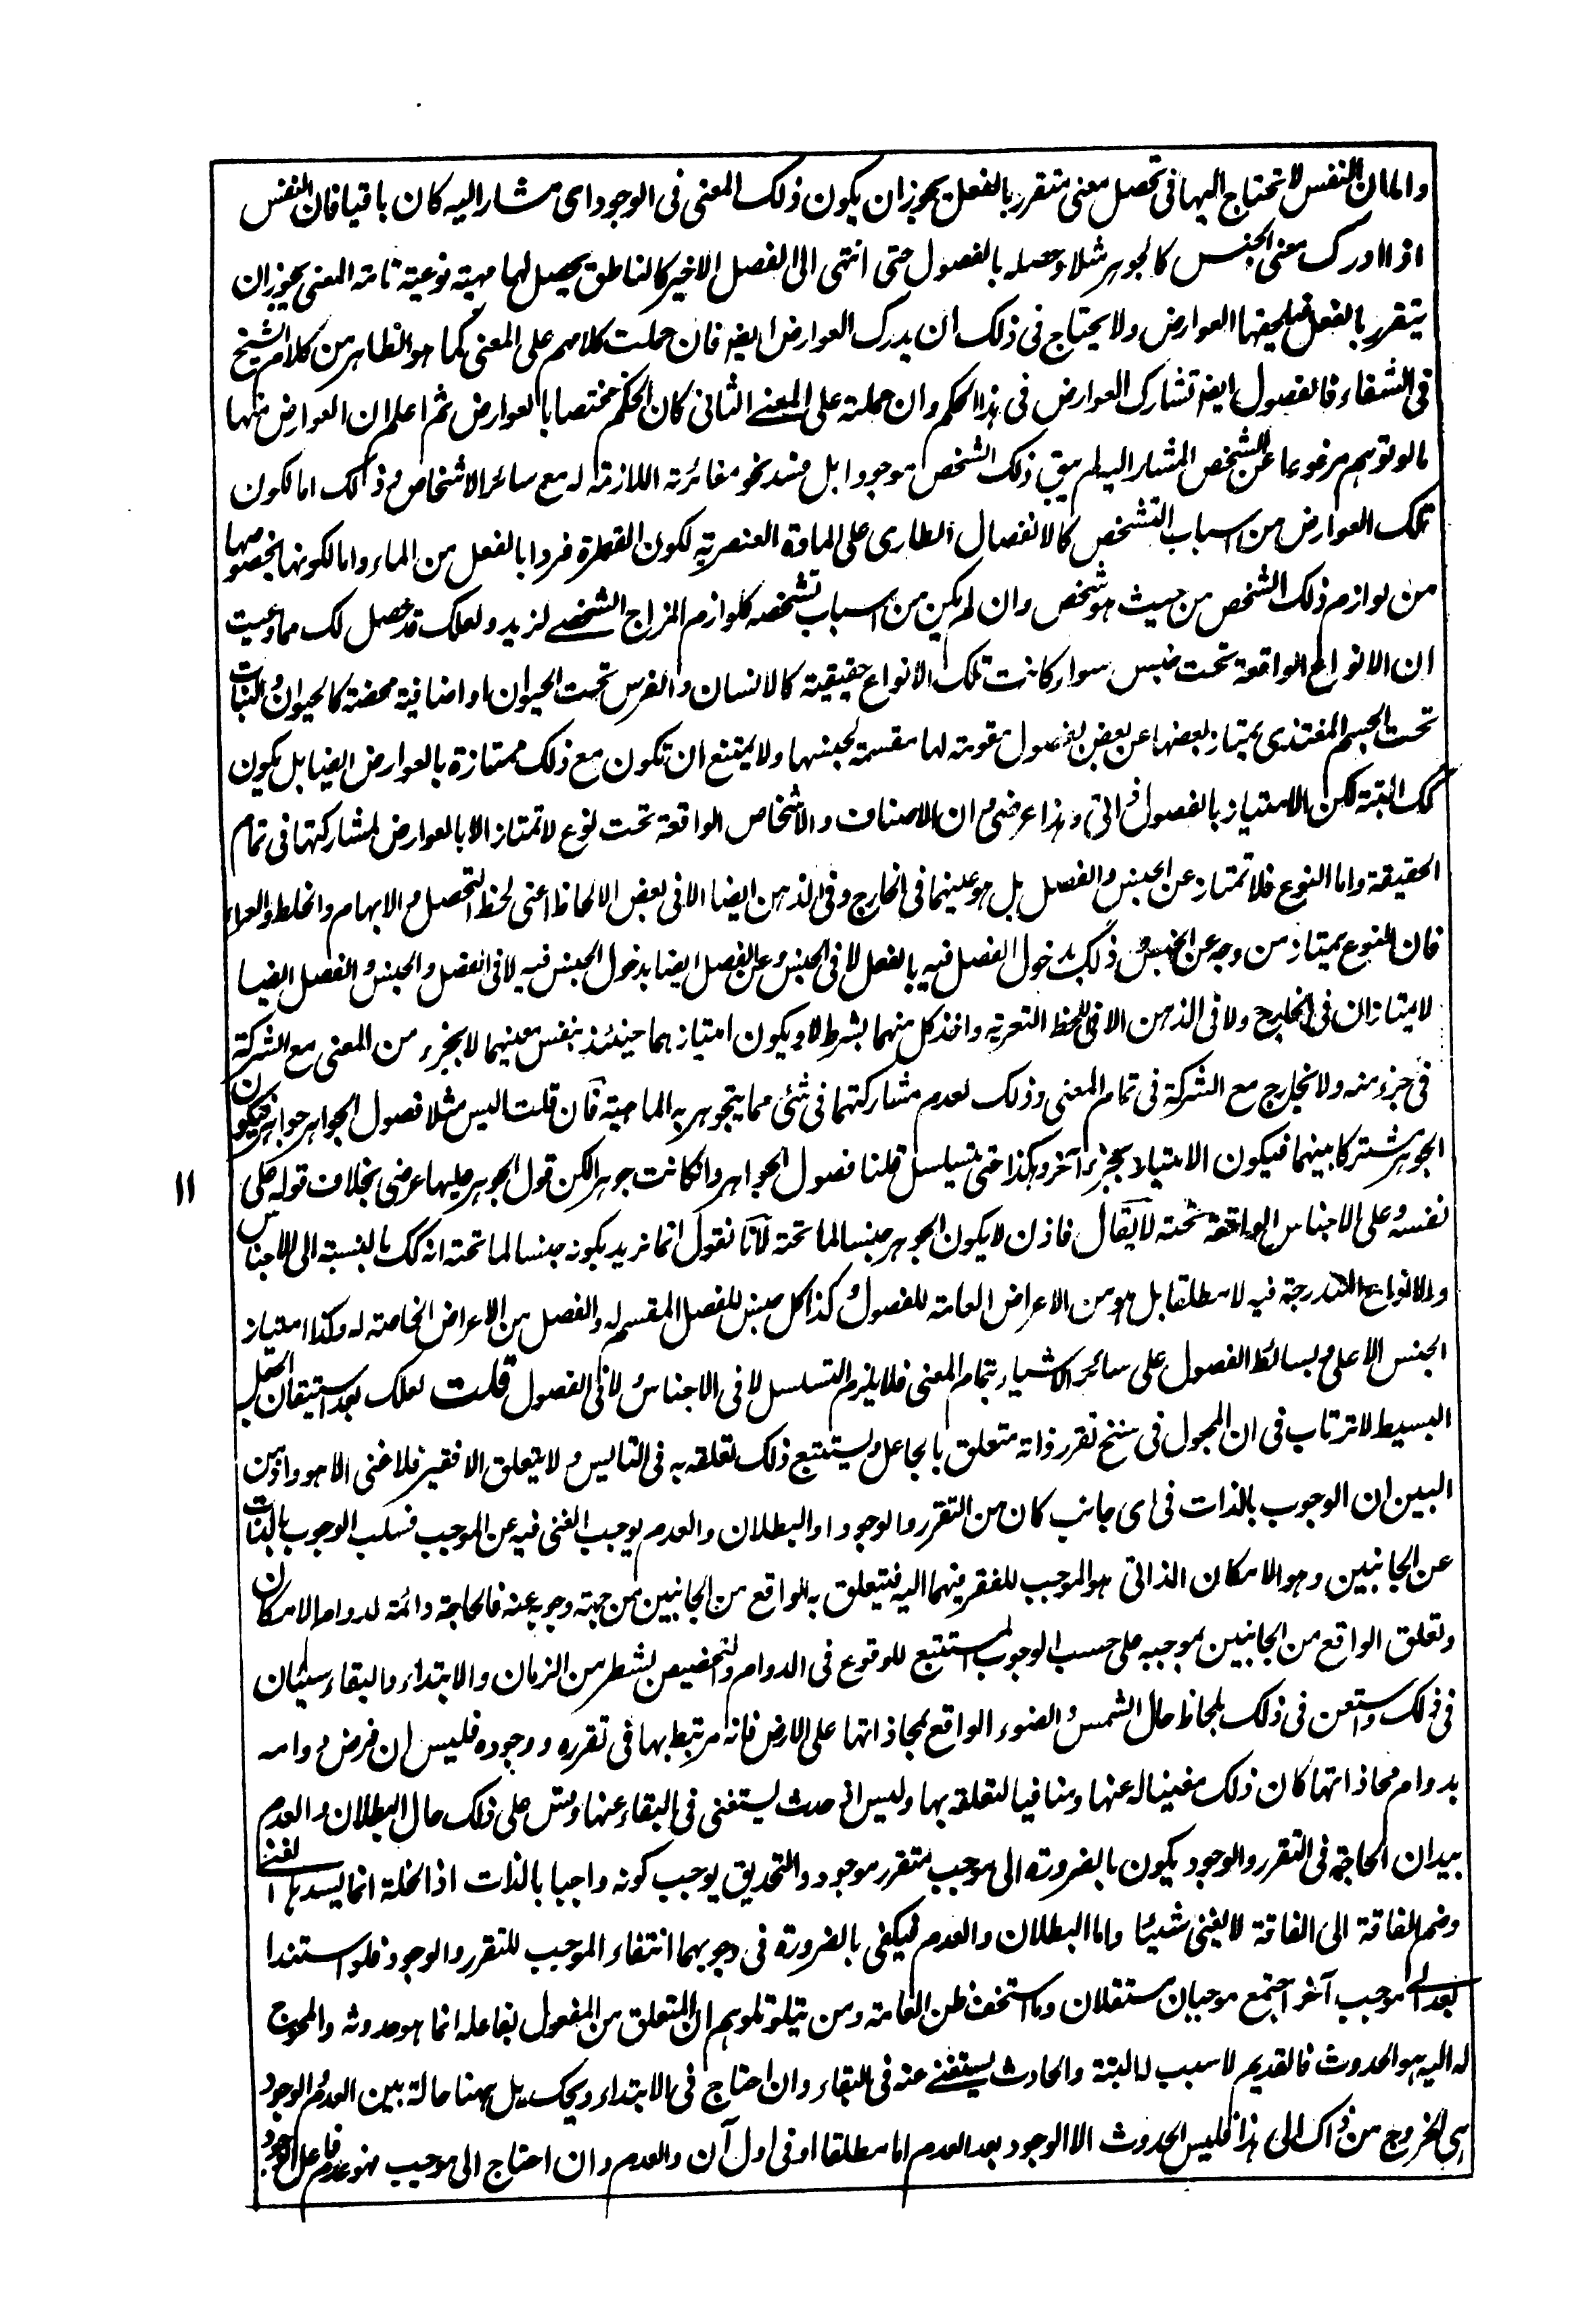 واما ان النفس لا تحتاج اليها فى تحصل معنى متقرر بالفعل يجوز ان يكون ذلك المعنى فى الوجود اى مشار اليه كان باقيا فان النفس
اذا ادرك معنى الجنس كالجوهر مثلا وحصله بالفصول حتى انتهى الى الفصل الاخير كالناطق يحصل لها مهية نوعية تامة المعنى يجوز ان
يتقرر بالفعل فيلحقها العوارض ولا يحتاج فى ذلك ان يدرك العوارض ايضه فان حملت كلامهم على المعنى كما هو الظاهر من كلام الشيخ
فى الشفاء فالفصول ايضه تشارك العوارض فى هذا الحكم وان حملته على المعنى الثانى كان الحكم مختصا بالعوارض ثم اعلم ان العوارض منها
ما لو توهم مرفوعا عن الشخص المشار اليه لم يبق ذلك الشخص موجودا بل فسد نحو مغائرته اللازمة له مع سائر الاشخاص و ذلك اما لكون
تلك العوارض من اسباب التشخص كالانفصال الطارى على المادة العنصرية لكون القطرة فردا بالفعل من الماء واما لكونها بخصوصها
من لوازم ذلك الشخص من حيث هو شخص وان لم يكن من اسباب تشخصه كلوازم المزاج الشخصى لزيد ولعلك قد حصل لك مما وعيت
ان الانواع الواقعة تحت جنس سواء كانت تلك الانواع حقيقية كالانسان والفرس تحت الحيوان او اضافية محضة كالحيوان والنبات
تحت الجسم المغتذى يمتاز بعضها عن بعض بفصول مقومة لها مقسمة لجنسها ولا يمتنع ان تكون مع ذلك ممتازة بالعوارض ايضا بل يكون
كك البتة لكن الامتياز بالفصول ذاتى وهذا عرضى و ان الاصناف والاشخاص الواقعة تحت نوع لا تمتاز الا بالعوارض لمشاركتها فى تمام
الحقيقة واما النوع فلا تمتاز عن الجنس والفصل بل هو عينهما فى الخارج وفى الذهن ايضا الا فى بعض الالحاظ اعنى لحظ التحصل و الابهام والخلط والعراء
فان النوع يمتاز من وجه عن الجنس و ذلك بدخول الفصل فيه بالفعل لا فى الجنس وعن الفصل ايضا بدخول الجنس فيه لا فى الفصل والجنس والفصل ايضا
لا يمتازان فى الخارج ولا فى الذهن الا فى اللحظ التعرية واخذ كل منهما بشرط لا ويكون امتيازهما حينئذ بنفس معنيهما لا بجزء من المعنى مع الشركة
فى جزء منه ولا بخارج مع الشركة فى تمام المعنى وذلك لعدم مشاركتهما فى شئ مما يتجوهر به الماهية فان قلت اليس مثلا فصول الجواهر جواهر فيكون
الجوهر مشتركا بينهما فيكون الامتياز بجزء آخر وهكذا حتى يتسلسل قلنا فصول الجواهر وان كانت جوهرا لكن قول الجوهر عليها عرضى بخلاف قوله على
نفسه وعلى الاجناس الواقعة تحته لا يقال فاذن لا يكون الجوهر جنسا لما تحته لانا نقول انما نريد بكونه جنسا لما تحته انه كك بالنسبة الى الاجناس
والانواع المندرجة فيه لا مطلقا بل هو من الاعراض العامة للفصول و كذا كل جنس للفصل المقسم له والفصل من الاعراض الخاصة له وكذا امتياز
الجنس الاعلى و بسائط الفصول على سائر الاشياء بتمام المعنى فلا يلزم التسلسل لا فى الاجناس و لا فى الفصول قلت لعلك بعد استيقان الجعل
البسيط لا ترتاب فى ان المجعول فى سنخ تقرر ذاته متعلق بالجاعل ويستتبع ذلك تعلقه به فى التأيس و لا يتعلق الا فقير فلا غنى الا هو واذ من
البين ان الوجوب بالذات فى اى جانب كان من التقرر والوجود او البطلان والعدم يوجب الغنى فيه عن الموجب فسلب الوجوب بالذات
عن الجانبين وهو الامكان الذاتى هو الموجب للفقر منهما اليه فيتعلق به الواقع من الجانبين من جهة وجوبه عنه فالحاجة دائمة لدوام الامكان
وتعلق الواقع من الجانبين بموجبه على حسب الوجوب المستتبع للوقوع فى الدوام والتخصيص بشطر من الزمان والابتداء والبقاء سيئان
فى ذلك واستعن فى ذلك بلحاظ حال الشمس و الضوء الواقع بمحاذاتها على الارض فانه مرتبط بها فى تقرره ووجوده فليس ان فرض دوامه
بدوام محاذاتها كان ذلك مغنيا له عنها ومنافيا لتعلقه بها وليس اذا حدث يستغنى فى البقاء عنها وقس على ذلك حال البطلان والعدم
بيد ان الحاجة فى التقرر والوجود يكون بالضرورة الى موجب متقرر موجود والتحديق يوجب كونه واجبا بالذات اذ الخلة انما يسدها الغنى
وضم الفاقة الى الفاقة لا يغنى شيئا واما البطلان والعدم فيكفى بالضرورة فى وجوبهما انتفاء الموجب للتقرر والوجود فلو استندا
بعد الى موجب آخر اجتمع موجبان مستقلان وما استخف ظن العامة ومن يتلو تلوهم ان المتعلق من المفعول بفاعله انما هو حدوثه والمحوج
له اليه هو الحدوث فالقديم لا سبب له البتة والحادث يستغنى عنه فى البقاء وان احتاج فى الابتداء ويحك هل ههنا حالة بين العدم و الوجود
هى الخروج من ذاك الى هذا فليس الحدوث الا الوجود بعد العدم اما مطلقا او فى اول آن والعدم وان احتاج الى موجب فهو عدم فاعل الوجود
١١